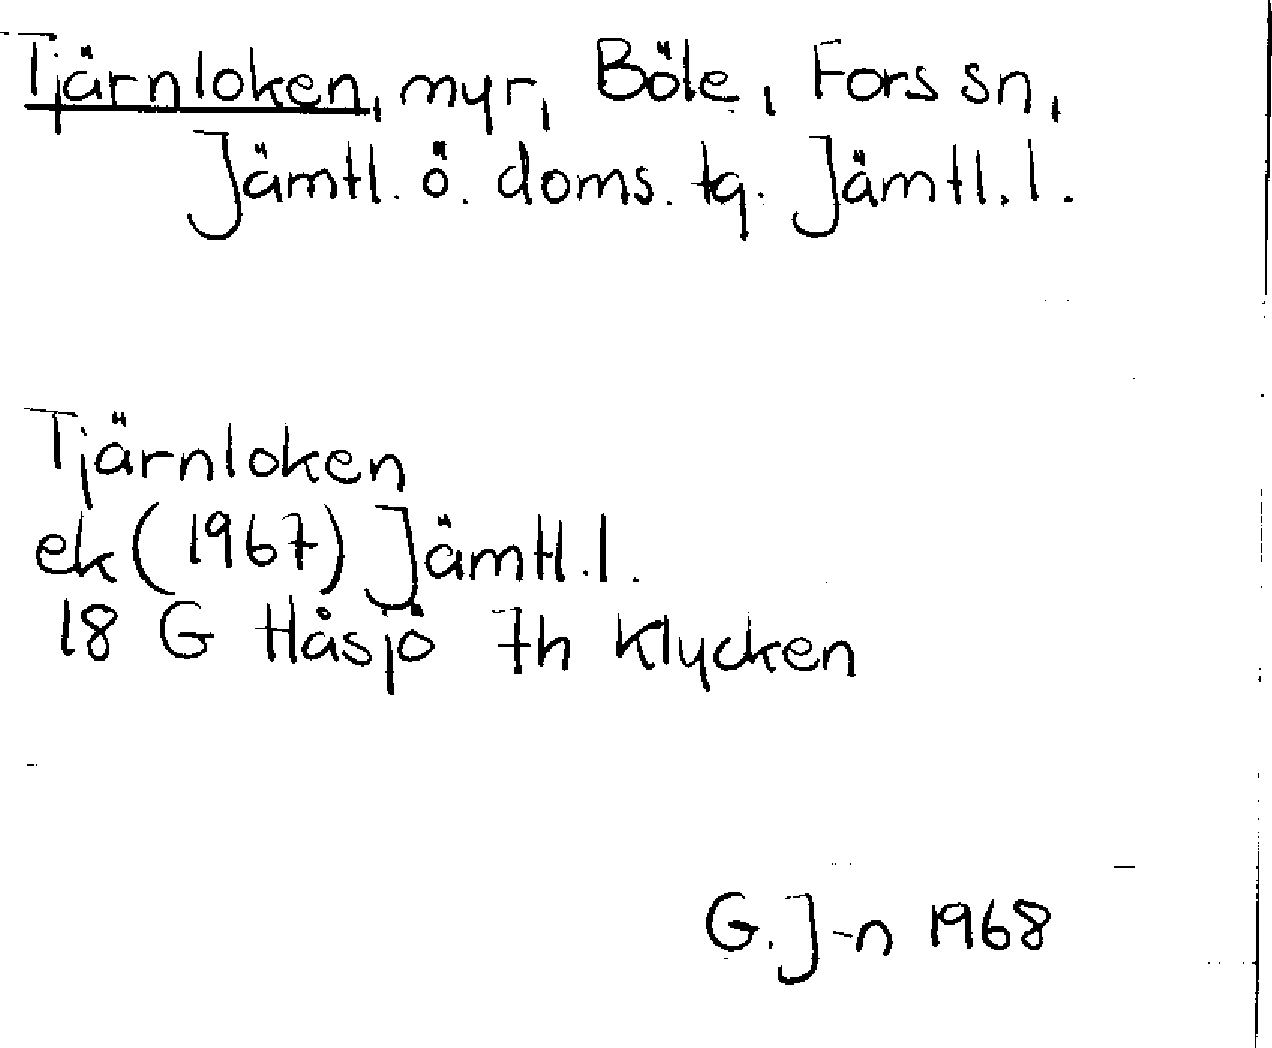 Tjärnloken, myr, Böle, Fors sn,
Jämtl. ö. doms. tg. Jämtl. l.
Tjärnloken
ek (1967) Jämtl. l.
18 G Håsjö 7h Klycken
G. J-n 1968